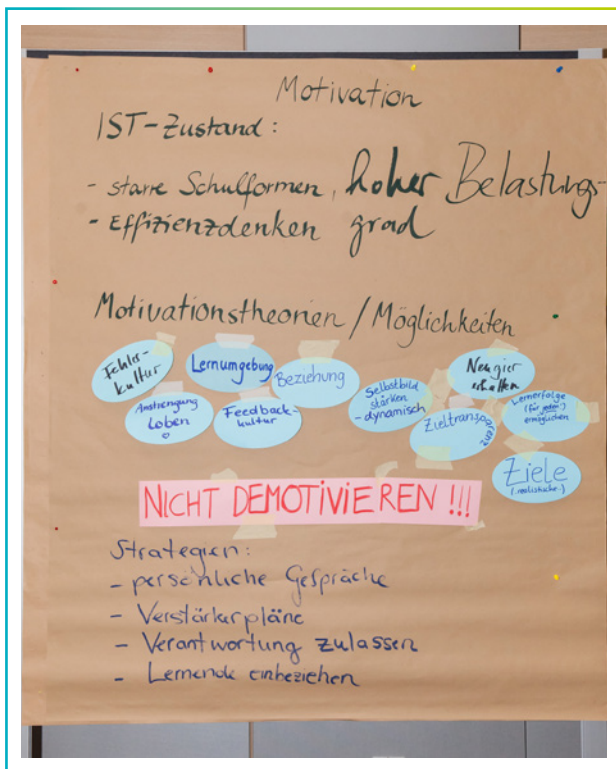 Motivation
IST-Zustand:
- starre Schulformen, hoher Belastungs-
- Effizienzdenken grad
Motivationstheorien / Möglichkeiten
Fehler-
kultur
Lernumgebung
Beziehung
Anstrengung
loben
Feedback-
kultur
Selbstbild
stärken
- dynamisch
Zieltransparenz
Neugier
erhalten
Lernerfolge
(für jeden!)
ermöglichen
Ziele
(realistische)
NICHT DEMOTIVIEREN !!!
Strategien:
- persönliche Gespräche
- Verstärkerpläne
- Verantwortung zulassen
- Lernende einbeziehen